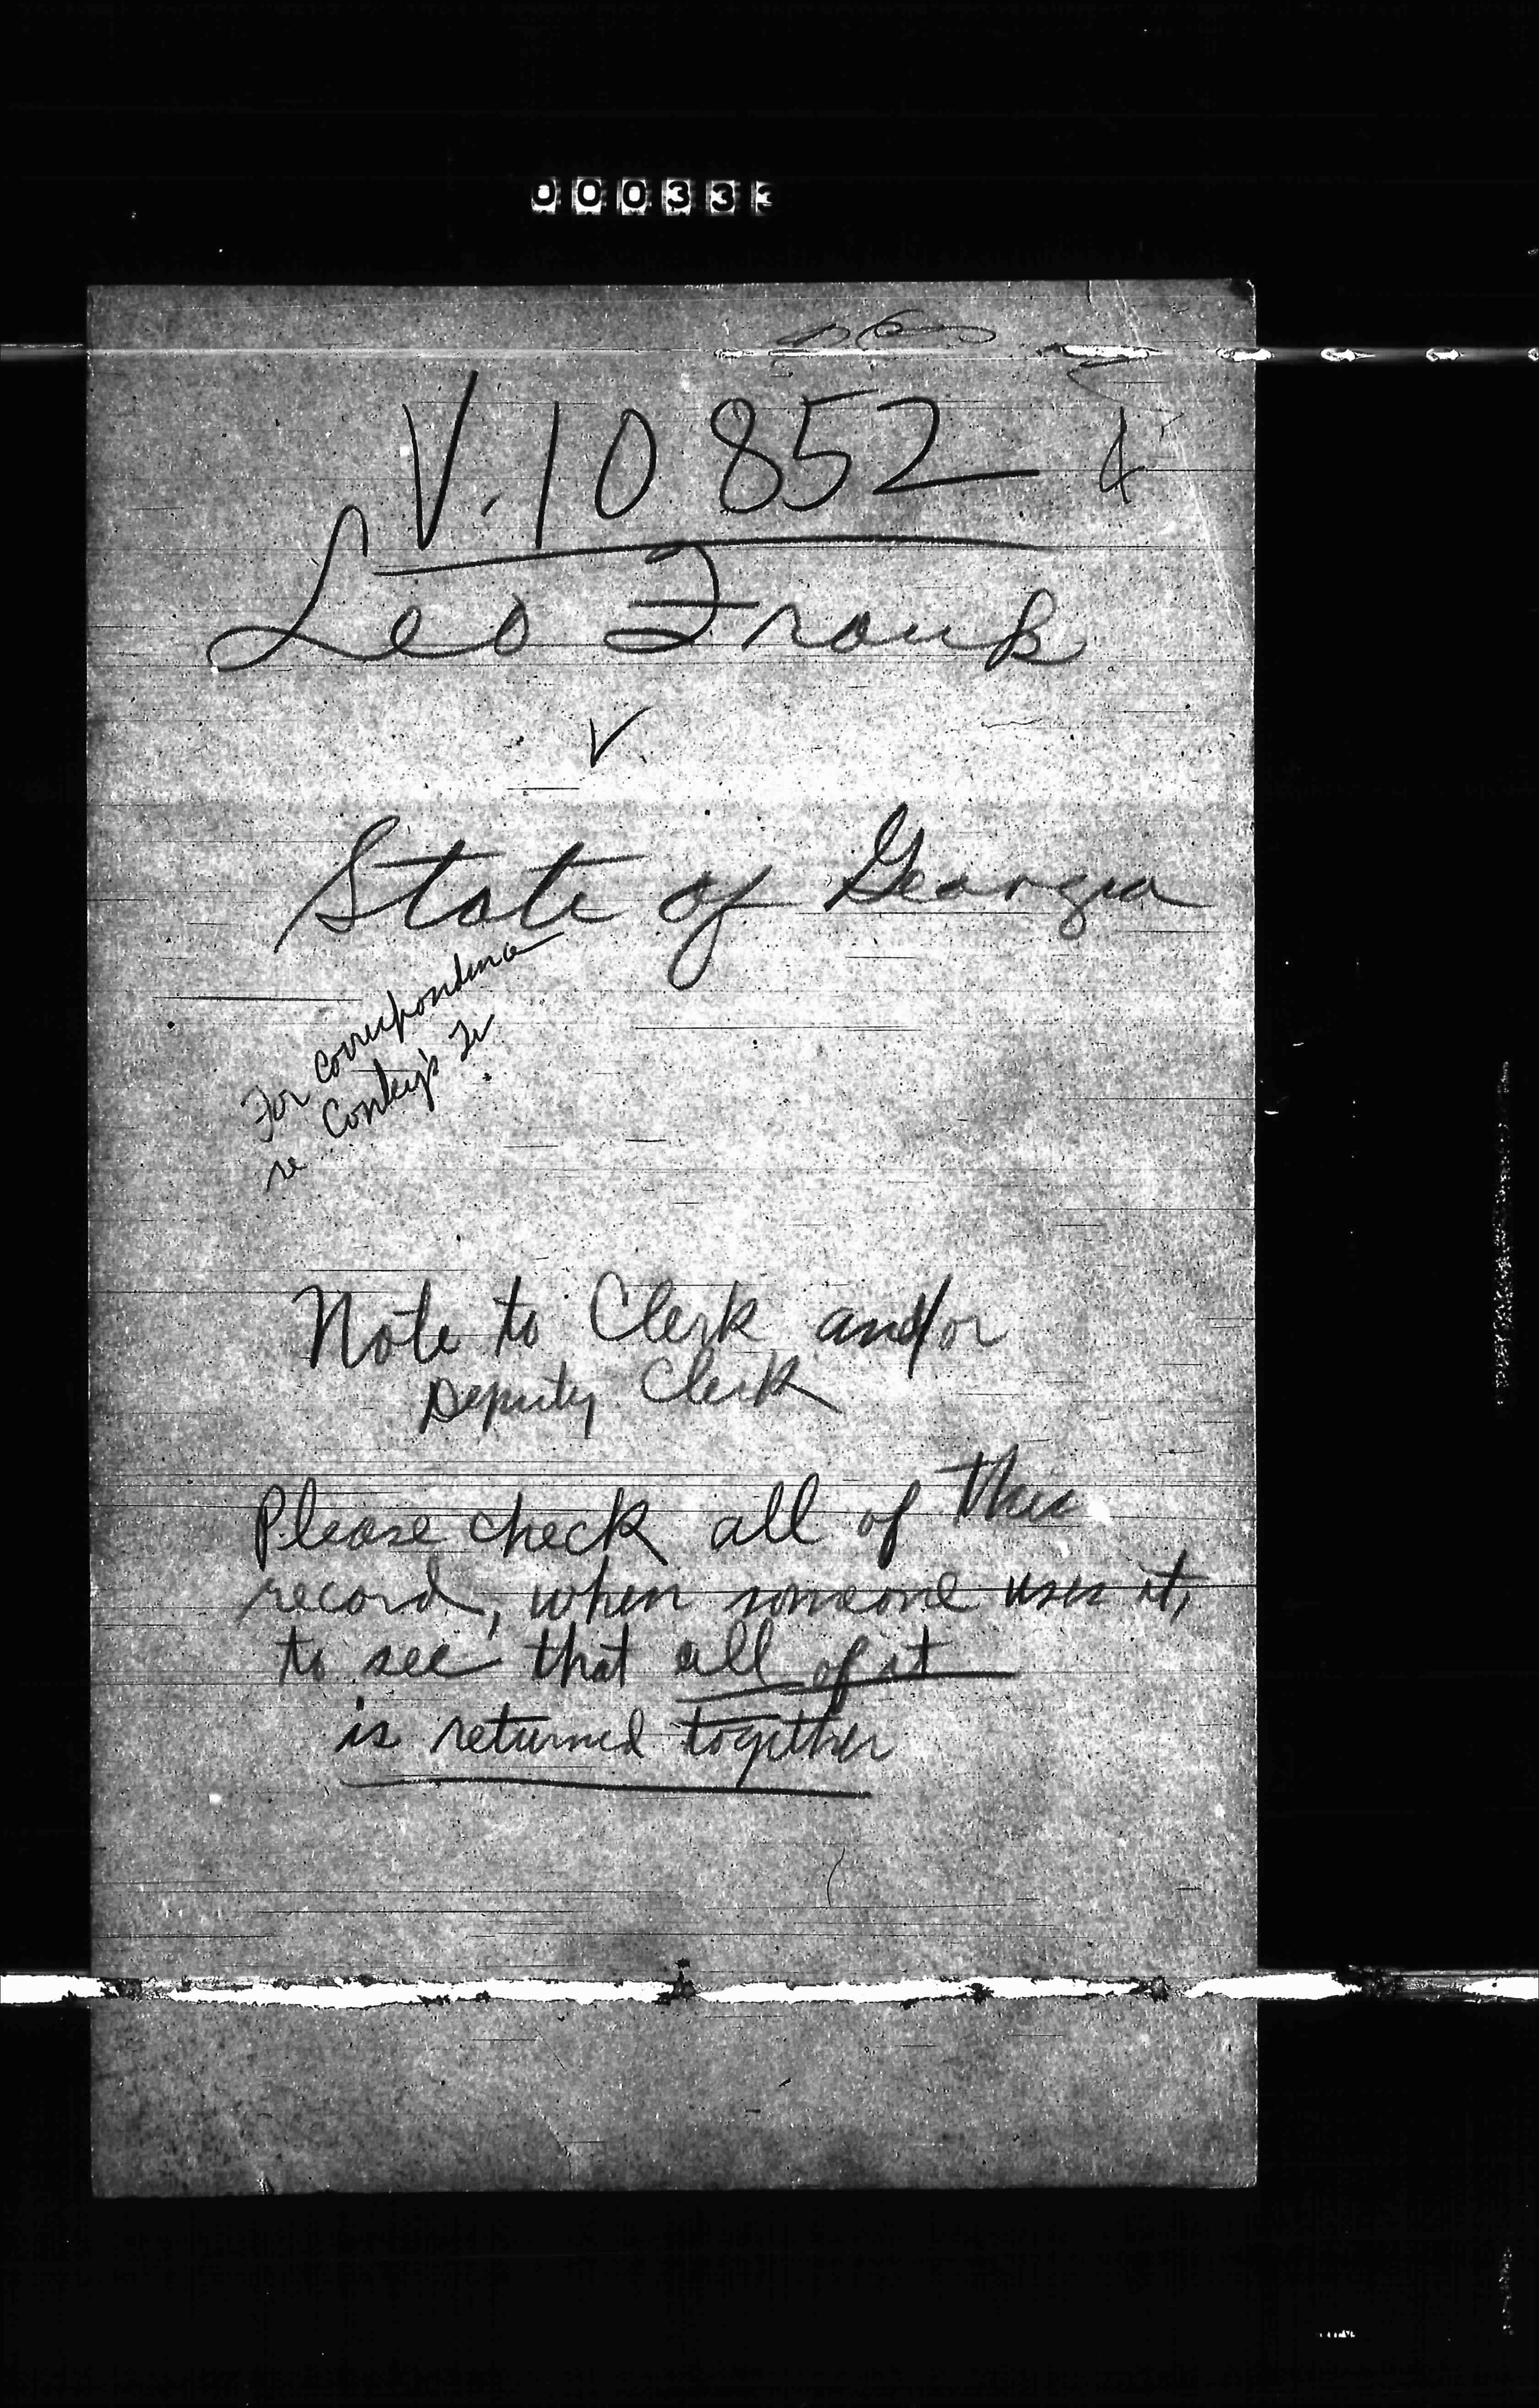 000333
V. 10 852
Leo Frank
V
State of Georgia
For correspondence
re Conley's
Note to Clerk and/or
Deputy Clerk
Please check all of this
record, when someone uses it,
to see that all of it
is returned together